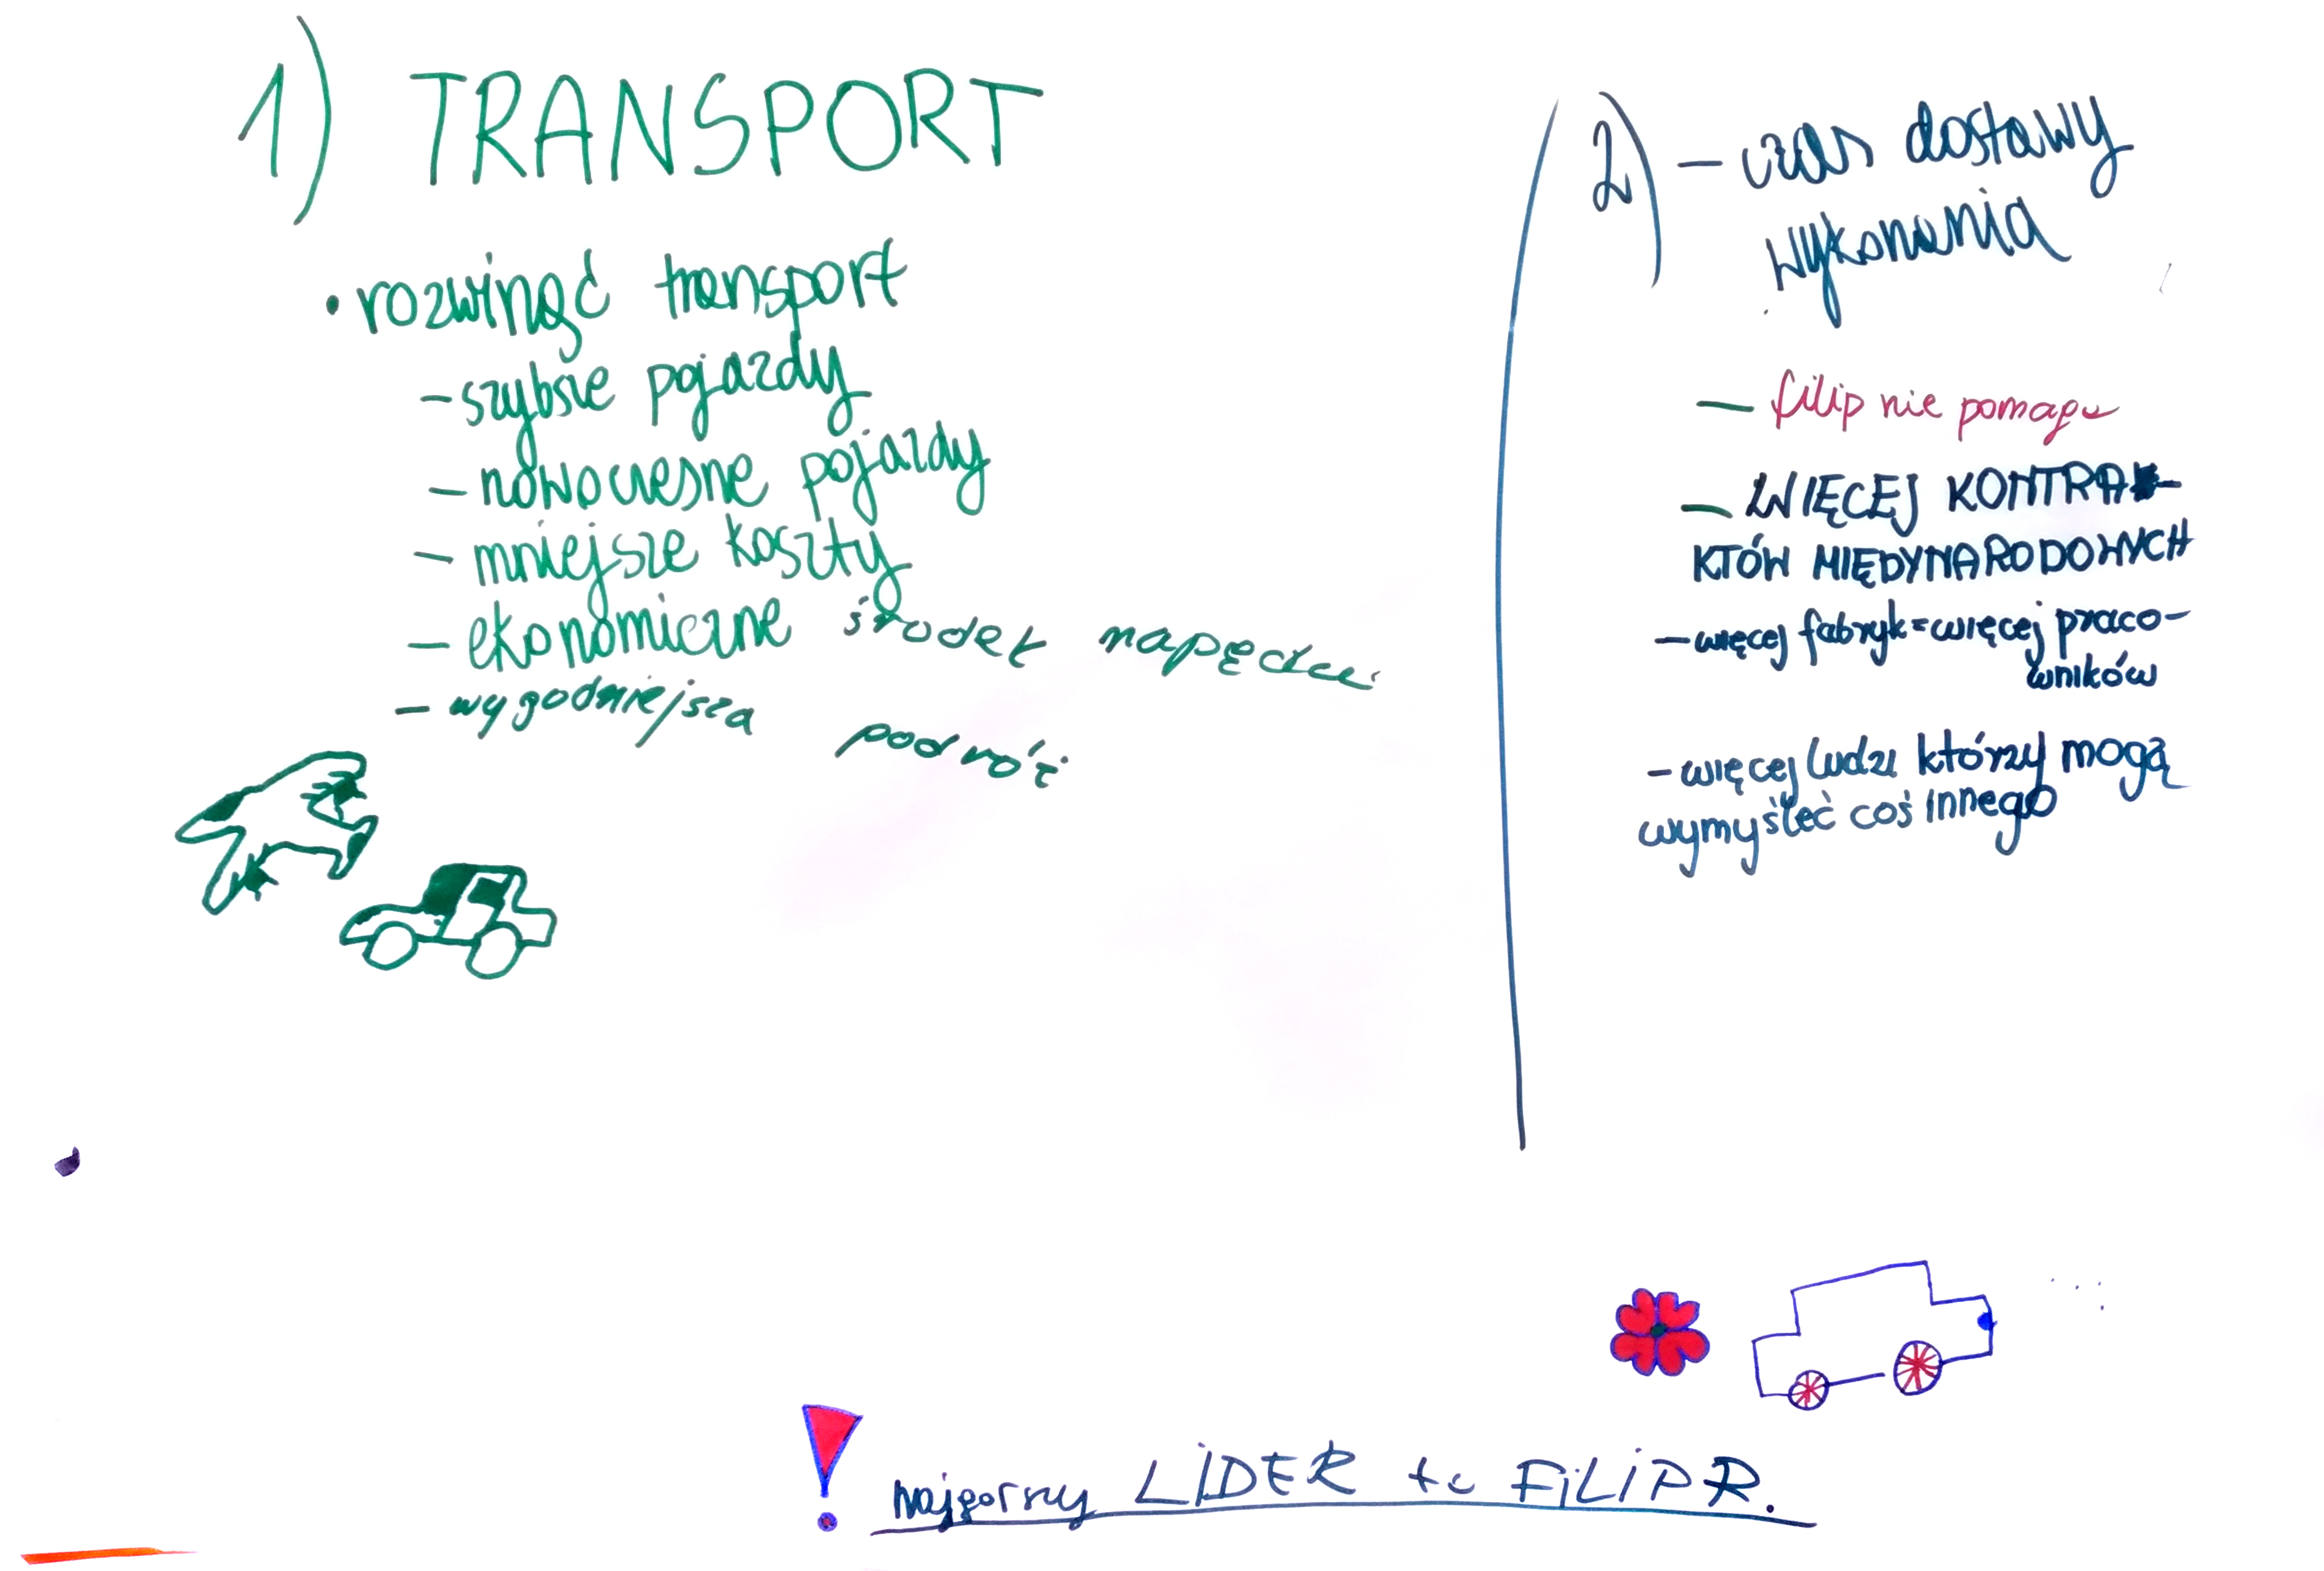 1) TRANSPORT
• rozwinąć transport
- szybsze pojazdy
- nowoczesne pojazdy
- mniejsze koszty
- ekonomiczne środek
- wygodniejsza podróż
2) - czas dostawy
wykonania
- filip nie pomaga
- WIĘCEJ KONTRA-
KTÓW MIĘDYNARODOWYCH
- więcej fabryk = więcej praco-
wników
- więcej ludzi którzy mogą
wymyśleć coś innego
! najgorszy LiDER to FiLiP R.